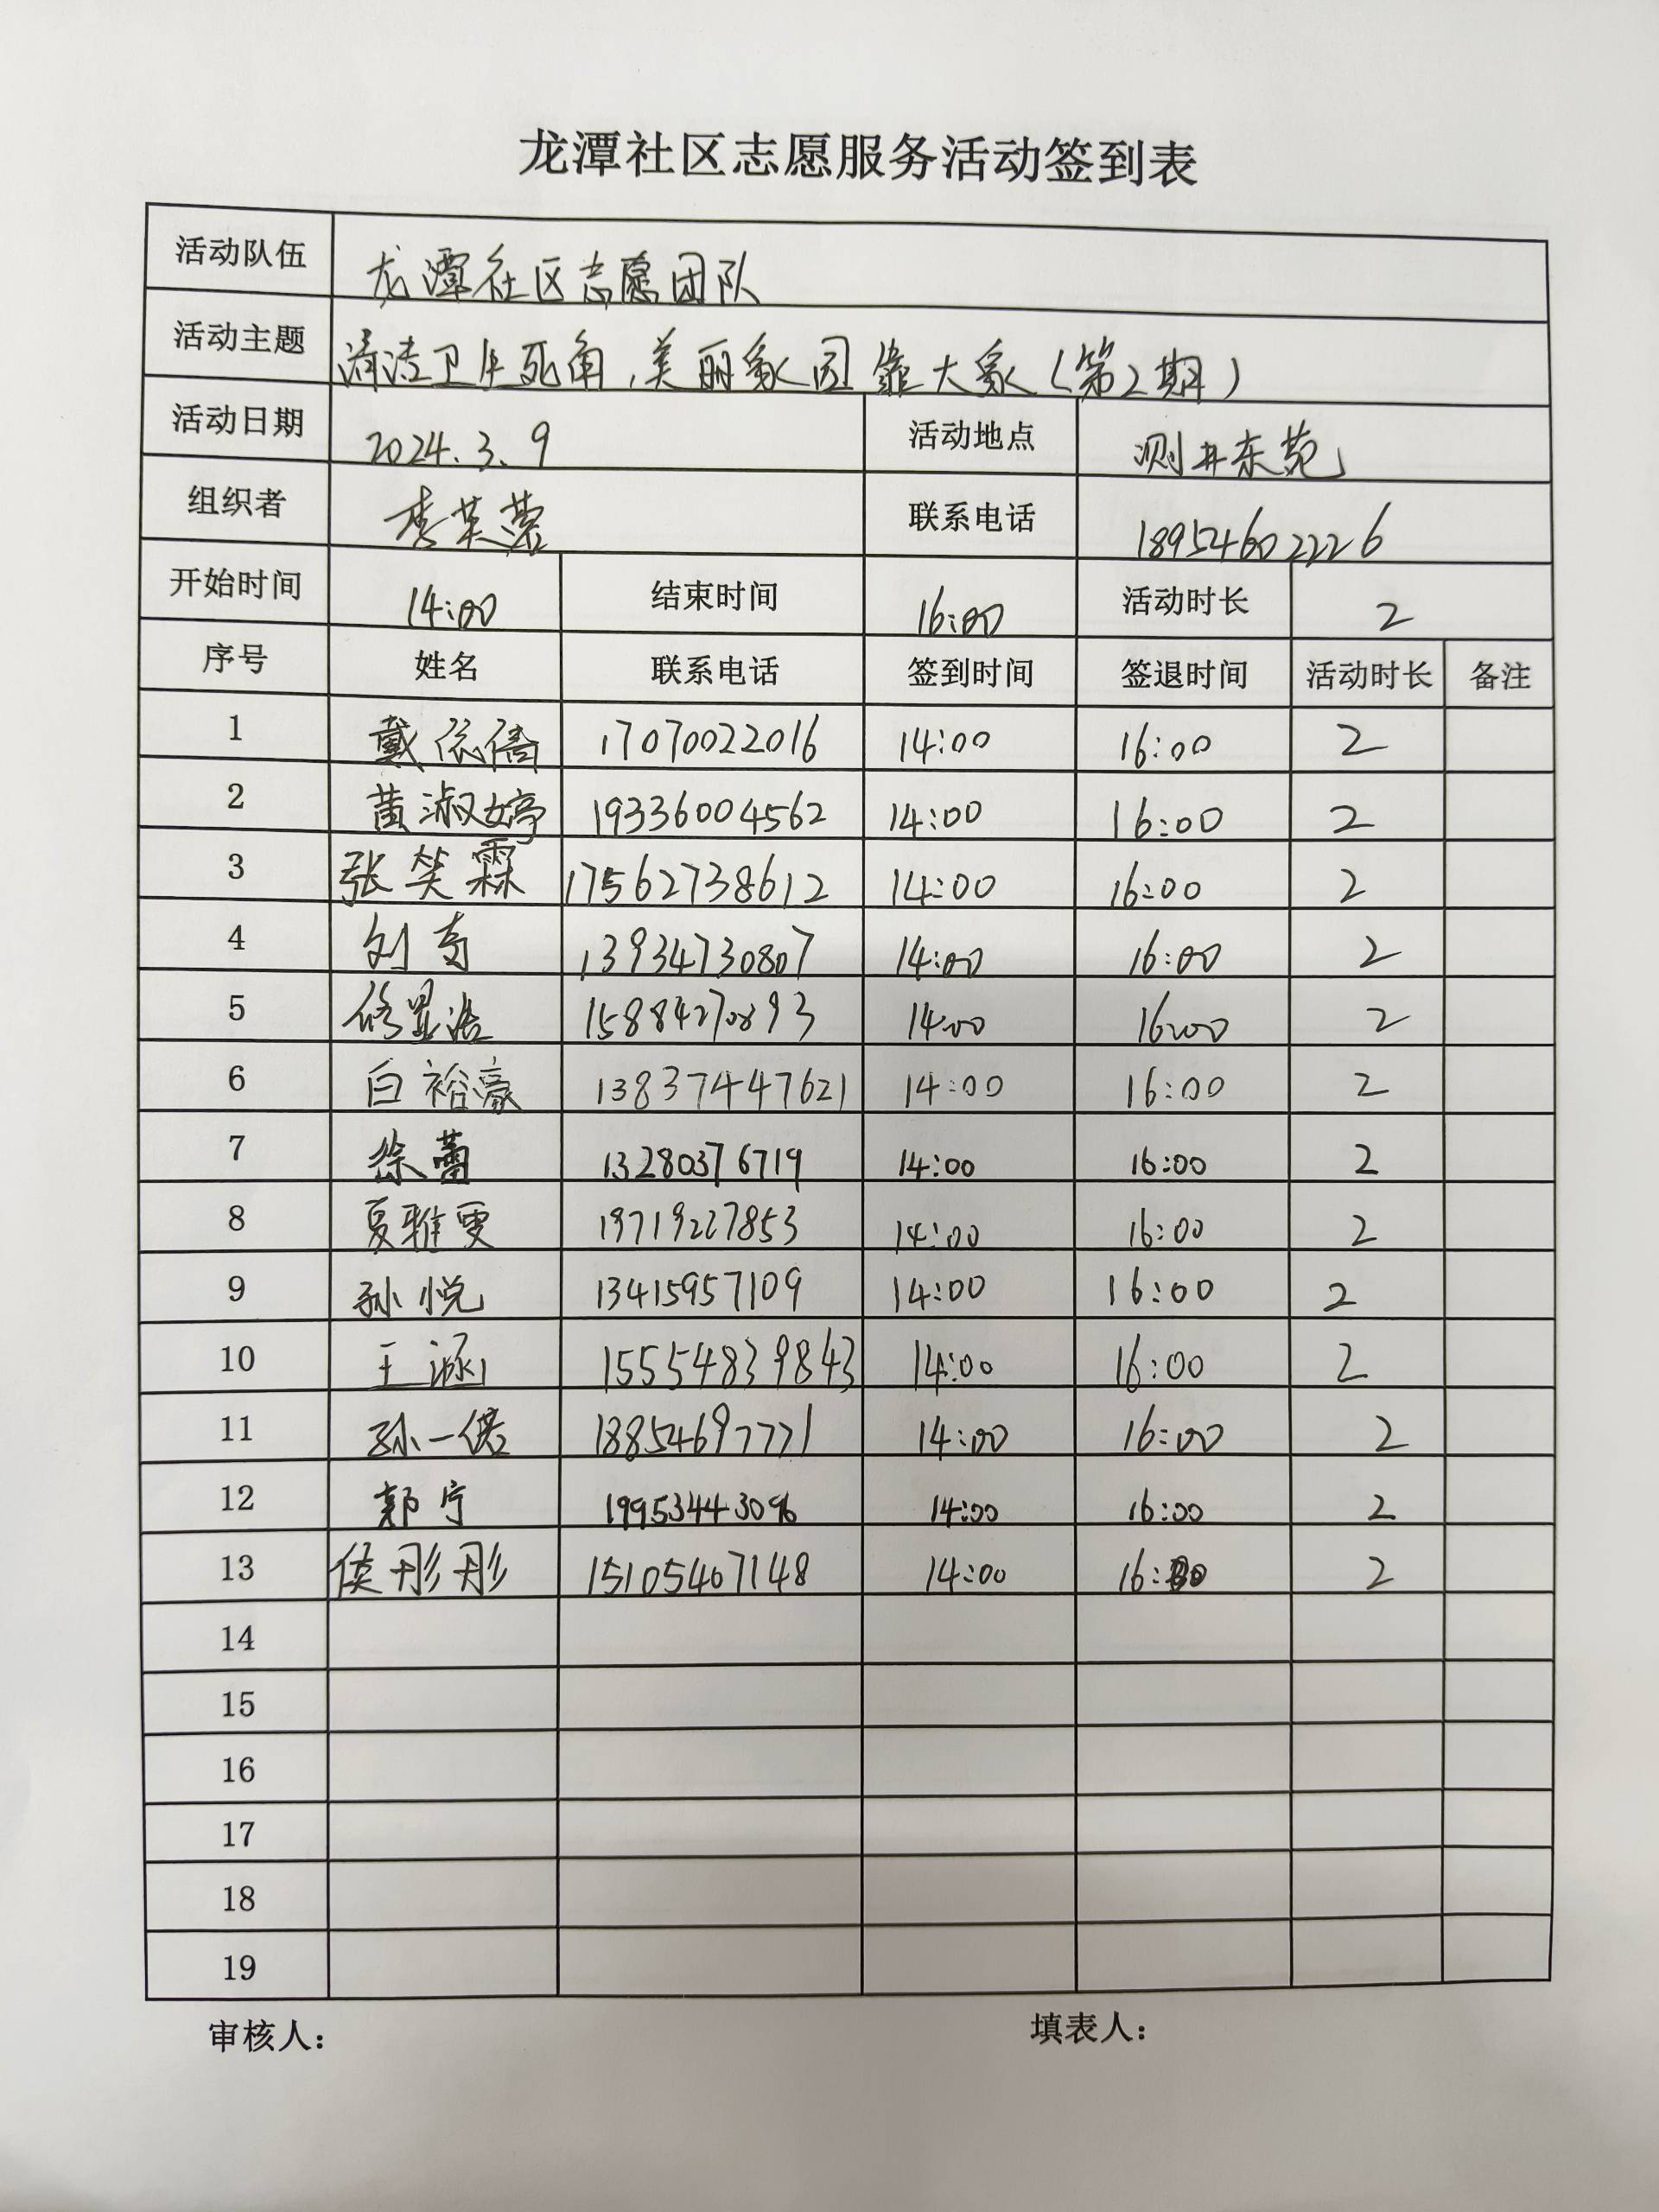 龙潭社区志愿服务活动签到表
活动队伍 龙潭社区志愿团队
活动主题 清洁卫生死角,美丽家园靠大家(第2期)
活动日期 2024.3.9 活动地点 测井东苑
组织者 李芙蓉 联系电话 18954602226
开始时间 14:00 结束时间 16:00 活动时长 2
序号 姓名 联系电话 签到时间 签退时间 活动时长 备注
1 戴依倩 17070022016 14:00 16:00 2
2 黄淑婷 19336004562 14:00 16:00 2
3 张笑霖 17562738612 14:00 16:00 2
4 刘奇 13934730807 14:00 16:00 2
5 修显浩 15884270893 14:00 16:00 2
6 白裕豪 13837447621 14:00 16:00 2
7 徐蕾 13280376719 14:00 16:00 2
8 夏雅雯 19719227853 14:00 16:00 2
9 孙悦 13415957109 14:00 16:00 2
10 王涵 15554839843 14:00 16:00 2
11 孙一偌 18854697771 14:00 16:00 2
12 郭宁 19953443096 14:00 16:00 2
13 侯彤彤 15105407148 14:00 16:00 2
14
15
16
17
18
19
审核人: 填表人: